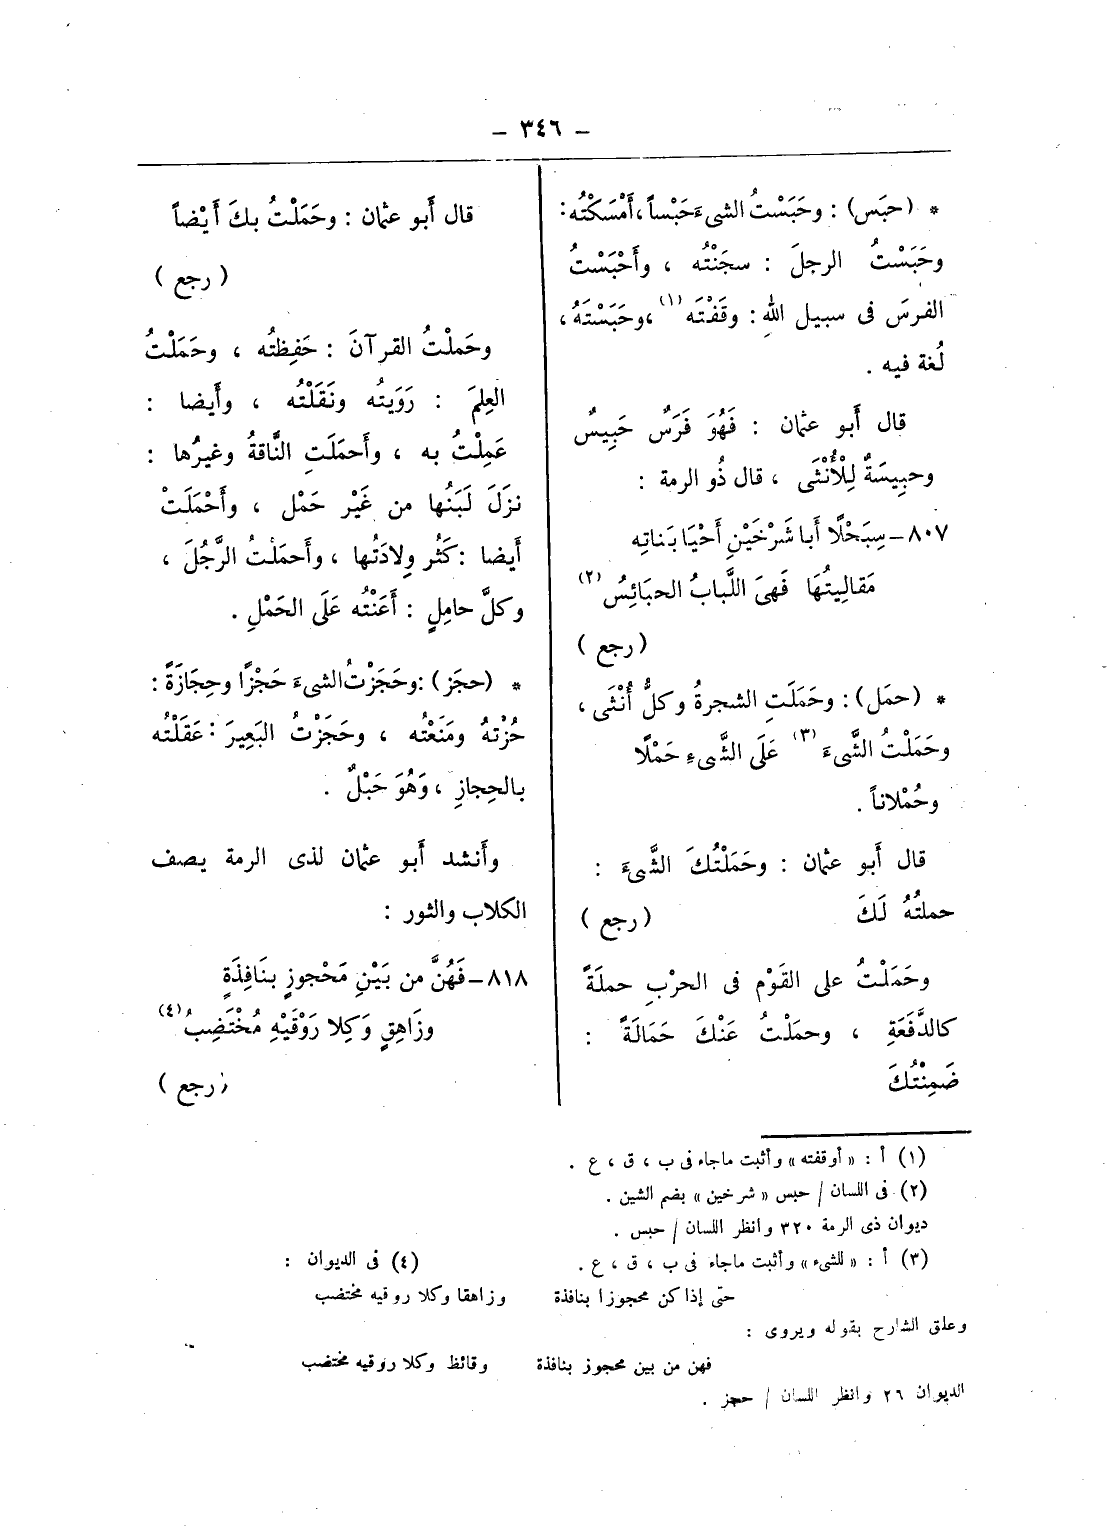 – ٣٤٦ –
* (حبَس) : وحَبَسْتُ الشىءَ حَبْساً ، أَمْسَكْتُه :
وحَبَسْتُ الرجلَ : سجَنْتُه ، وأَحْبَسْتُ
الفرسَ فى سبيل اللهِ : وقَفْتَه (١) ، وحَبَسْتَهُ ،
لُغة فيه .
قال أَبو عثمان : فَهُوَ فَرَسٌ حَبِيسٌ
وحبِيسَةٌ لِلْأُنْثَى ، قال ذُو الرمة :
٨٠٧ – سِبَحْلًا أَبا شَرْخَيْنِ أَحْيَا بَناتِه
مَقالِيتُهَا فَهىَ اللُّبابُ الحبَائِسُ (٢)
(رجع)
* (حمَل) : وحَمَلَتِ الشجرةُ وكلُّ أُنْثَى ،
وحَمَلْتُ الشَّىءَ (٣) عَلَى الشَّىءِ حَمْلًا
وحُمْلاناً .
قال أَبو عثمان : وحَمَلْتُكَ الشَّىءَ :
حملتُهُ لَكَ (رجع)
وحَمَلْتُ على القَوْم فى الحرْبِ حملَةً
كالدَّفَعَةِ ، وحمَلْتُ عَنْكَ حَمَالَةً :
ضَمِنْتُكَ
قال أَبو عثمان : وحَمَلْتُ بكَ أَيْضاً
(رجع)
وحَملْتُ القرآنَ : حَفِظتُه ، وحَمَلْتُ
العِلمَ : رَوَيتُه ونَقَلْتُه ، وأَيضا :
عَمِلْتُ به ، وأَحمَلَتِ النَّاقةُ وغيرُها :
نزَلَ لَبَنُها من غَيْر حَمْل ، وأَحْمَلَتْ
أَيضا : كَثُر وِلادَتُها ، وأَحمَلْتُ الرَّجُلَ ،
وكلَّ حامِلٍ : أَعَنْتُه عَلَى الحَمْلِ .
* (حجَز) : وحَجَزْتُ الشىءَ حَجْزًا وحِجَازَةً :
حُزْتهُ ومَنَعْتُه ، وحَجَزْتُ البَعِيرَ : عَقَلْتُه
بالحِجازِ ، وَهُوَ حَبْلٌ .
وأَنشد أَبو عثمان لذى الرمة يصف
الكلاب والثور :
٨١٨ – فَهُنَّ من بَيْنِ مَحْجوزٍ بنَافِذَةٍ
وزَاهِقٍ وَكِلا رَوْقَيْهِ مُخْتَضِبُ (٤)
(رجع)
(١) أ : « أوقفته » وأثبت ماجاء فى ب ، ق ، ع .
(٢) فى اللسان / حبس « شرخين » بضم الشين .
ديوان ذى الرمة ٣٢٠ وانظر اللسان / حبس .
(٣) أ : « للشىء » وأثبت ماجاء فى ب ، ق ، ع . (٤) فى الديوان :
حتى إذا كن محجوزا بنافذة وزاهقا وكلا روقيه مختضب
وعلق الشارح بقوله ويروى :
فهن من بين محجوز بنافذة وقائظ وكلا روقيه مختضب
الديوان ٢٦ وانظر اللسان / حجز .